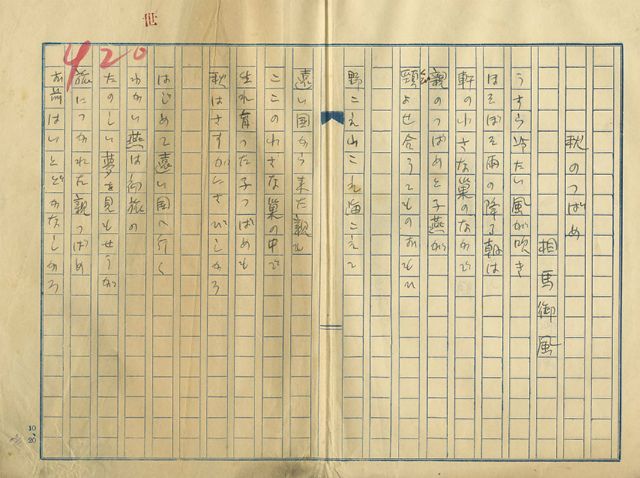 秋のつばめ
相馬御風
うすら冷たい風が吹き
ほそぼそ雨の降る朝は
軒の小さな巣のなかで
親のつばめと子燕が
頸よせ合うてものおもひ
野こえ山こえ海こえて
遠い国から来た親も
ここの小さな巣の中で
生れ育った子つばめも
秋はさすがにさびしかろ
はじめて遠い国へ行く
わかい燕は初旅の
たのしい夢を見もせうが
旅につかれた親つばめ
お前はいとどかなしかろ
420
10.20